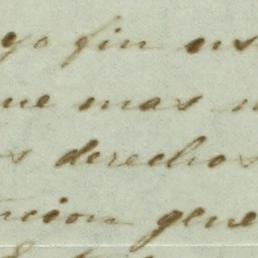 yo fin
que mas
s derechos
ncion gene